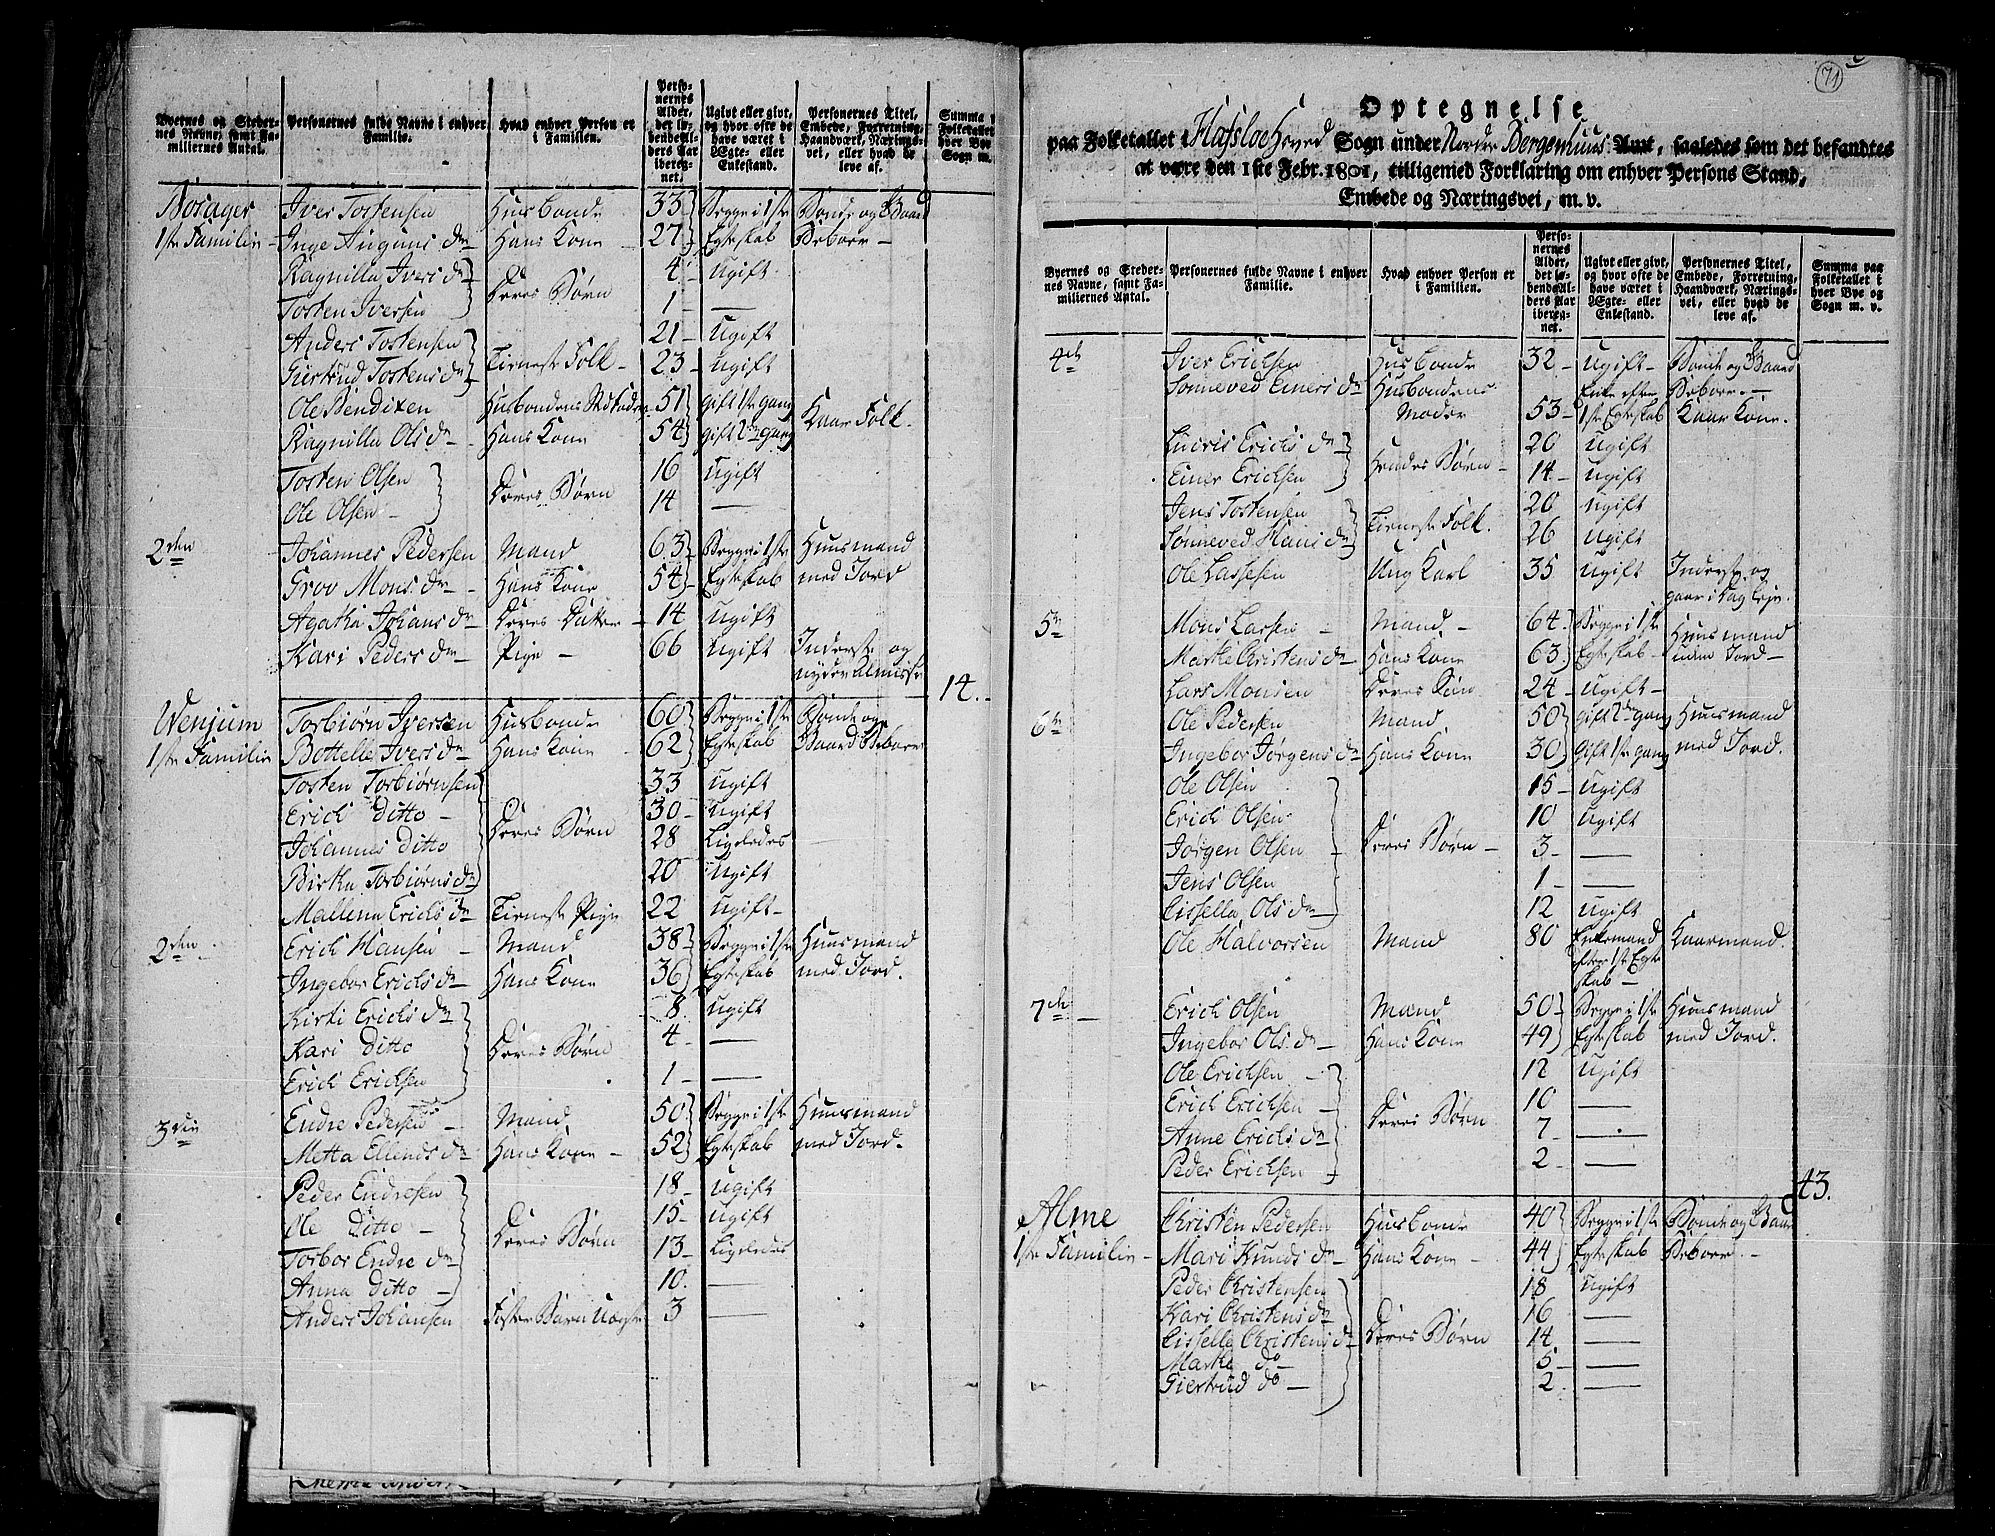 Byernes og Steder-
nes Navne, samt Fa-
miliernes Antal.
Personernes fulde Navne i enhver
Familie.
Hvad enhver Person er
i Familien.
Perso-
nernes
Alder,
det lø-
bende Al-
ders Aar
ibereg-
net.
Ugivt eller givt,
og hvor ofte de
have været i
Ægte- eller
Enkestand.
Personernes Titel,
Embede, Forretning,
Haandværk, Nærings-
vei, eller hvad de
leve af.
Summa p
Folketallet
hver Bye
Sogn m.
Iver Tostensen Husbonde 33 Begge i 1ste Bonde og Gaard
1ste Familie Inge Auguns Dr Hans Kone 27 Egteskab Beboer
Ragnilla Ivers Dr 4 Ugift
Deres Børn
Tosten Iversen 1 —
Anders Tostensen 21 Ugift
Giertrud Tostens Dr Tieneste Folk 23 Ugift
Ole Bendixen Husbondens Stiffader 51 Gift 1ste gang Kaar Folk.
Ragnilla Ols Dr Hans Kone 54 Gift 2den gang
Tosten Olsen 16 Ugift
Deres Børn
Ole Olsen 14 —
2den Johannes Pedersen Mand 63 Begge i 1ste Huusmand
Grov Mons Dr Hans Kone 54 Egteskab med Jord
Agatha Johans Dr Deres Datter 14 Ugift
Kari Peders Dr Pige 66 Ugift Inderste og
nyder Almisse
14.
Wenjum Torbiørn Iversen Husbonde 60 Begge i 1ste Bonde og
1ste Familie Bottelle Ivers Dr Hans Kone 62 Egteskab Gaard Beboer
Tosten Torbiørnsen 33 Ugift
Erich Ditto 30 Ugift
Deres Børn
Johannes Ditto 28 Ligeledes
Birtha Torbiørns Dr 20 Ugift
Mallena Erichs Dr Tieneste Pige 22 Ugift
2den Erich Hansen Mand 38 Begge i 1ste Huusmand
Ingebor Erichs Dr Hans Kone 36 Egteskab med Jord.
Kirsti Erichs Dr 8 Ugift
Kari Ditto Deres Børn 4 —
Erich Erichsen 1 —
3die Endre Pedersen Mand 50 Begge i 1ste Huusmand
Metta Ellends Dr Hans Kone 52 Egteskab med Jord.
Peder Endresen 18 Ugift
Ole Ditto 15 Ugift
Deres Børn
Torbor Endre Dr 13 Ligeledes
Anna Ditto 10 —
Anders Johansen Foster Barn 3 —
71
Optegnelse
paa Folketallet i Hafsloe Hoved Sogn under Nordre Bergenhuus Amt, saaledes som det befandtes
at være den 1ste Febr. 1801, tilligemed Forklaring om enhver Persons Stand,
Embede og Næringsvei, m. v.
Byernes og Steder-
nes Navne, samt Fa-
miliernes Antal.
Personernes fulde Navne i enhver
Familie.
Hvad enhver Person er
i Familien.
Perso-
nernes
Alder,
det lø-
bende Al-
ders Aar
ibereg-
net.
Ugivt eller givt,
og hvor ofte de
have været i
Ægte- eller
Enkestand.
Personernes Titel,
Embede, Forretning,
Haandværk, Nærings-
vei, eller hvad de
leve af.
Summa paa
Folketallet i
hver Bye og
Sogn m. v.
4de Iver Erichsen Husbonde 32 Ugift Bonde og Gaard
Sønneved Einers Dr Husbondens Enke efter Beboer
Moder 53 1ste Egteskab Kaar Kone.
Erichs Dr 20 Ugift
Hendes Børn
Einer Erichsen 14 Ugift
Jens Tostensen 20 Ugift
Tieneste Folk.
Sønneved Hans Dr 26 Ugift
Ole Lassesen Ung Karl 35 Ugift Inderste og
5te Mons Larsen Mand 64 Begge i 1ste Huusmand
Marthe Christens Dr Hans Kone 63 Egteskab uden Jord
Lars Monsen Deres Søn 24 Ugift
6te Ole Pedersen Mand 50 Gift 2de gang Huusmand
Ingebor Jørgens Dr Hans Kone 30 Gift 1ste gang med Jord.
Ole Olsen 15 Ugift
Erich Olsen 10 Ugift
Jørgen Olsen Deres Børn 3 —
Jens Olsen 1 —
Cissella Ols Dr 12 Ugift
Ole Halvorsen Mand 80 Enkemand Kaarmand.
efter 1ste Egte
skab
7de Erich Olsen Mand 50 Begge i 1ste Huusmand
Ingebor Ols Dr Hans Kone 49 Egteskab med Jord.
Ole Erichsen 12 Ugift
Erich Erichsen 10 —
Deres Børn
Anne Erichs Dr 7 —
Peder Erichsen 2 —
43.
Alme Christen Pedersen Husbonde 40 Begge i 1ste Bonde og Gaard
1ste Familie Mari Knuds Dr Hans Kone 44 Egteskab Beboer
Peder Christensen 18 Ugift
Kari Christens Dr 16 —
Cisselle Christens Dr Deres Børn 14 —
Marthe do 5 —
Giertrud do 2 —